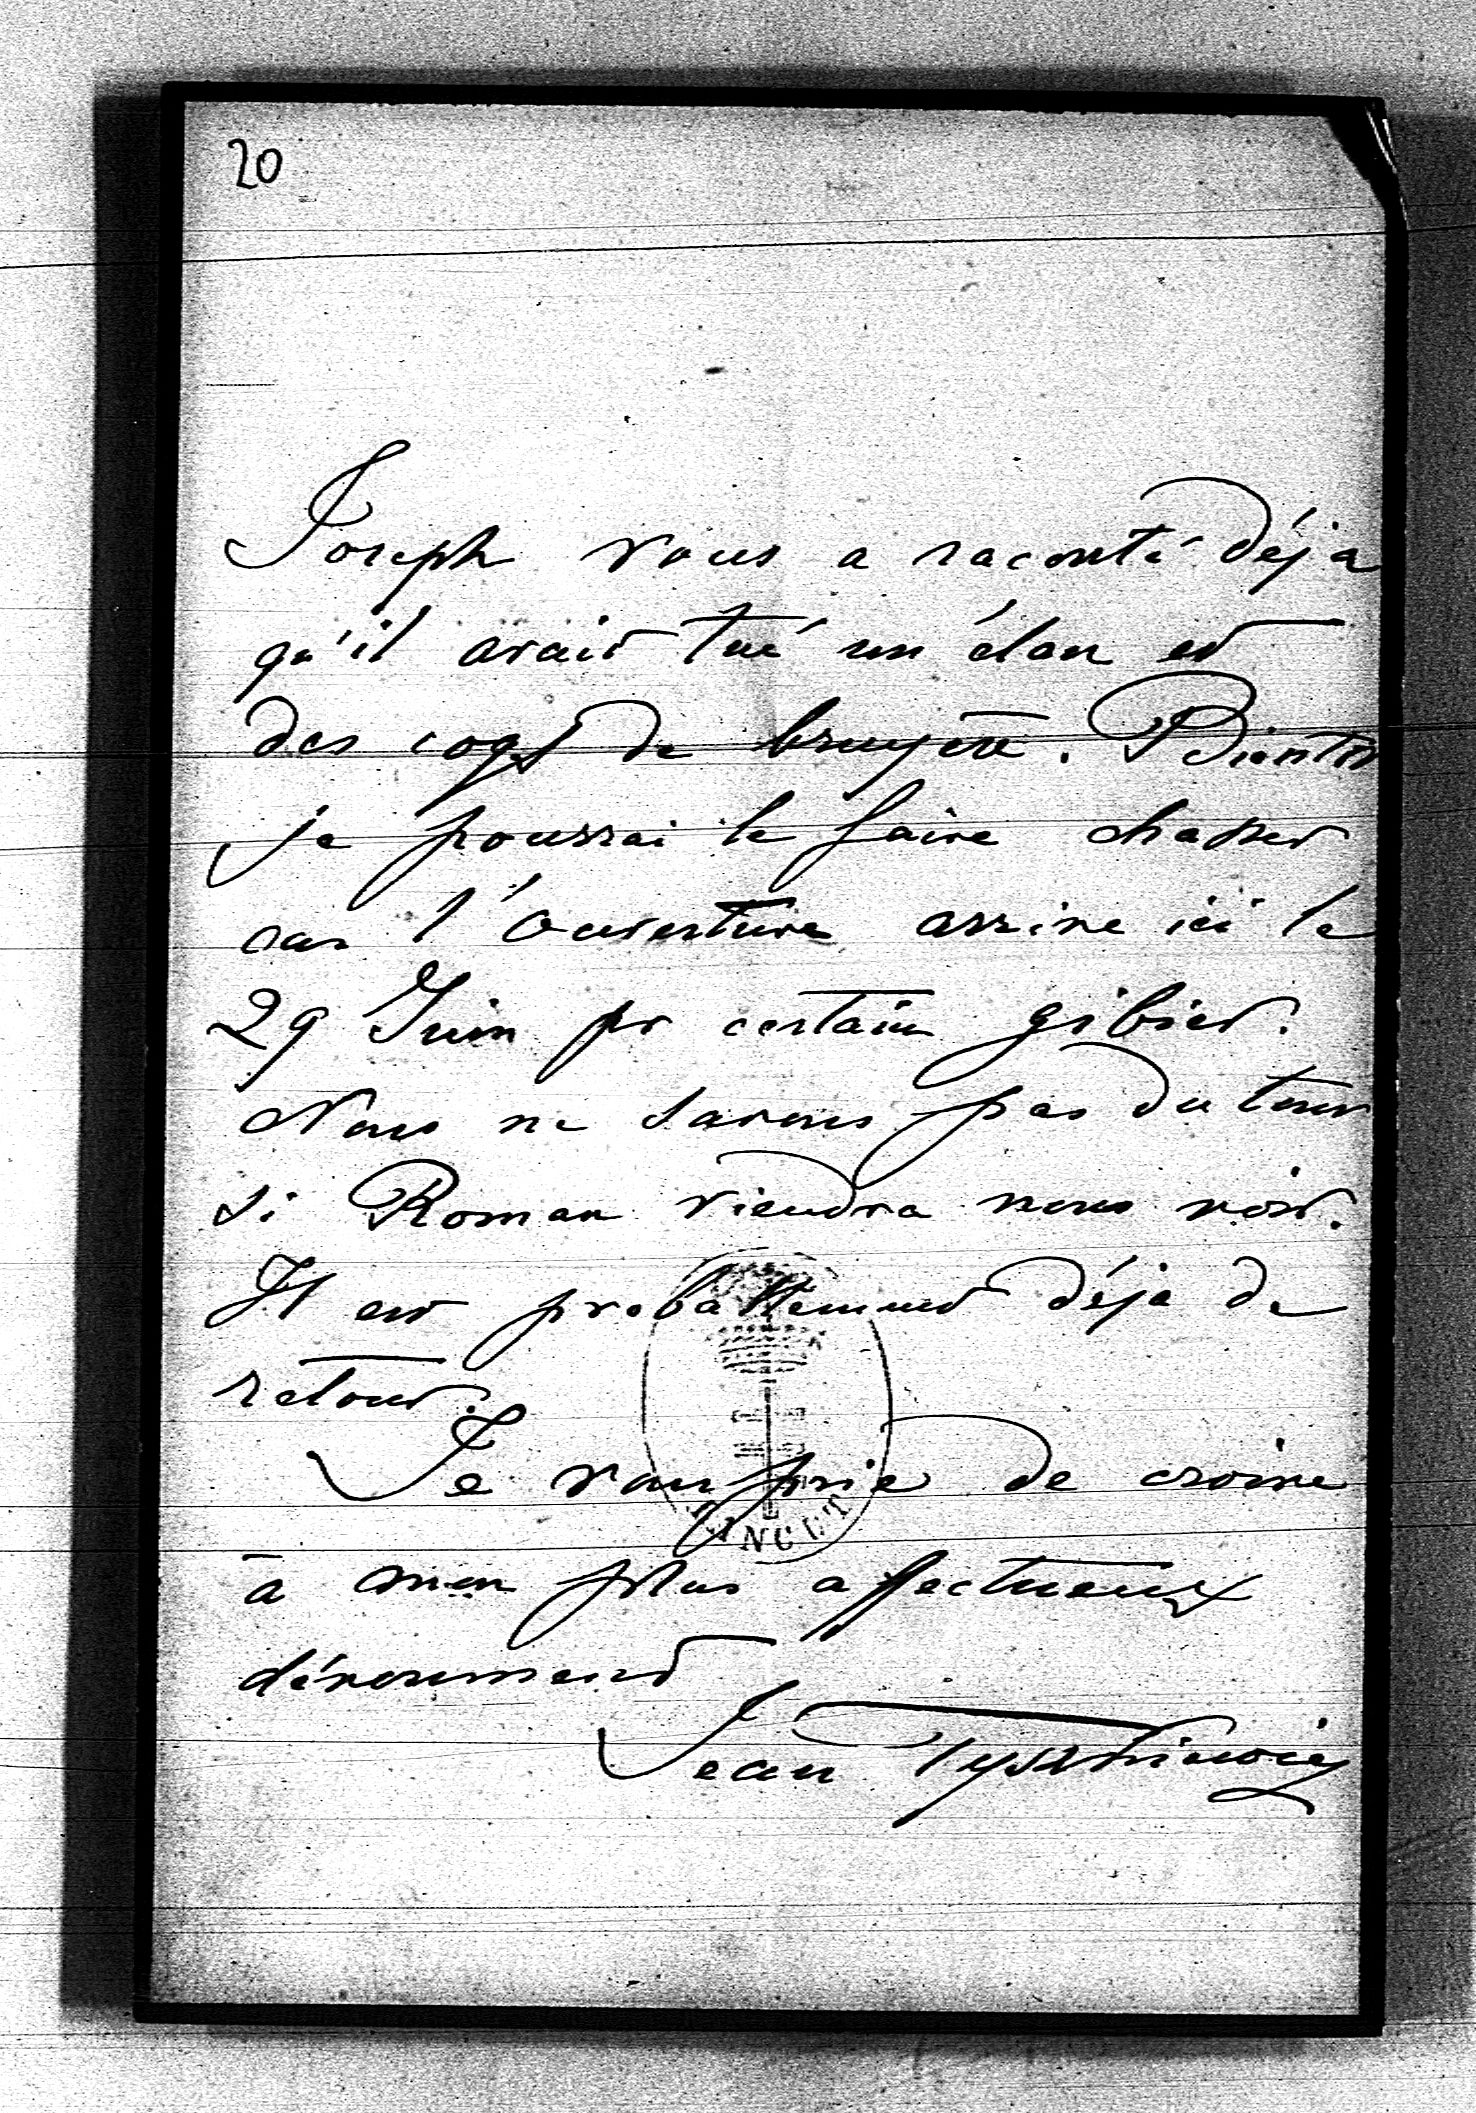 20
Joseph vous a raconté déja
qu'il avait tué un élan et
des coqs de bruyère. Bientôt
je pourrai le faire chasser
car l'ouverture arrive ici le
29 Juin pr certain gibier.
Nous ne savons pas du tout
si Roman viendra nous voir.
Il est probablement déja de
retour.
Je vous prie de croire
à mon plus affectueux
dévoument
Jean Tyszkiewicz